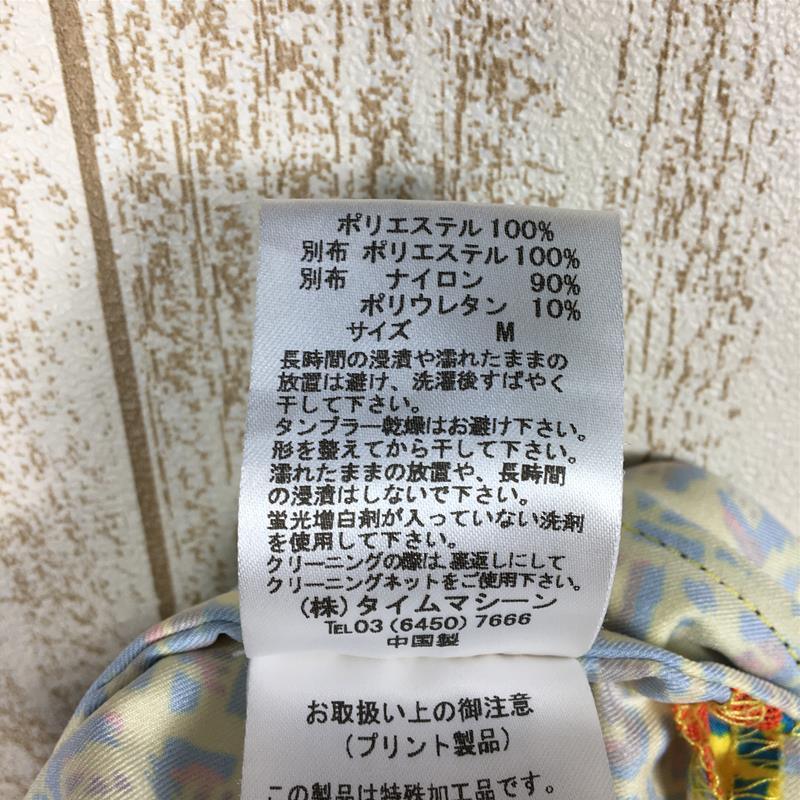 ポリエステル 100%
別布 ポリエステル 100%
別布 ナイロン 90%
ポリウレタン 10%
サイズ M
長時間の浸漬や濡れたままの
放置は避け、洗濯後すばやく
干して下さい。
タンブラー乾燥はお避け下さい。
形を整えてから干して下さい。
濡れたままの放置や、長時間
の浸漬はしないで下さい。
蛍光増白剤が入っていない洗剤
を使用して下さい。
クリーニングの際は、裏返しにして
クリーニングネットをご使用下さい。
(株)タイムマシーン
TEL 03 (6450) 7666
中国製
お取扱い上の御注意
(プリント製品)
この製品は特殊加工品です。